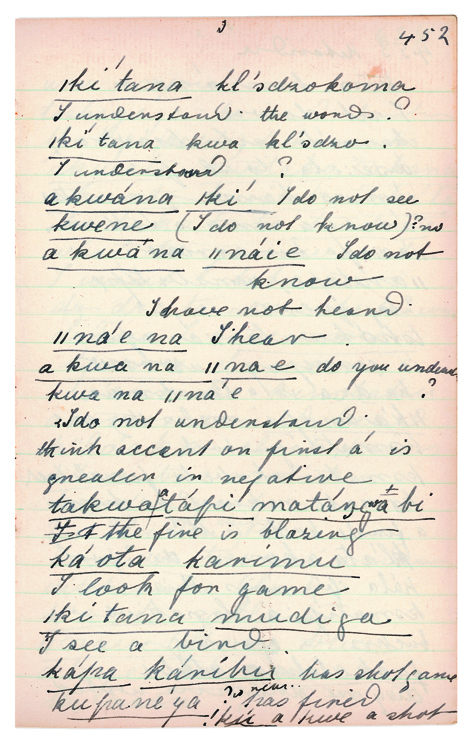 3
452
ıkí'tana kl'sdrokoma
I understand the words.?
ıkítana kwa kl'sdro.
I understand ?
akwána ıkí' I do not see
kwene (I do not know)? no
a kwá na ıınáíe I do not
know
I have not heard.
ııná'e na I hear.
a kwa na ıınae do you under
kwa na ııná'e ?
I do not understand.
think accent on first á is
greater in negative
takwa tápi matáng bi
the fire is blazing
káota karimu
I look for game
ıkítana mudiga
I see a bird.
kapa káríbu has shot game
kupane ya ? has fired ?
a kwe a shot